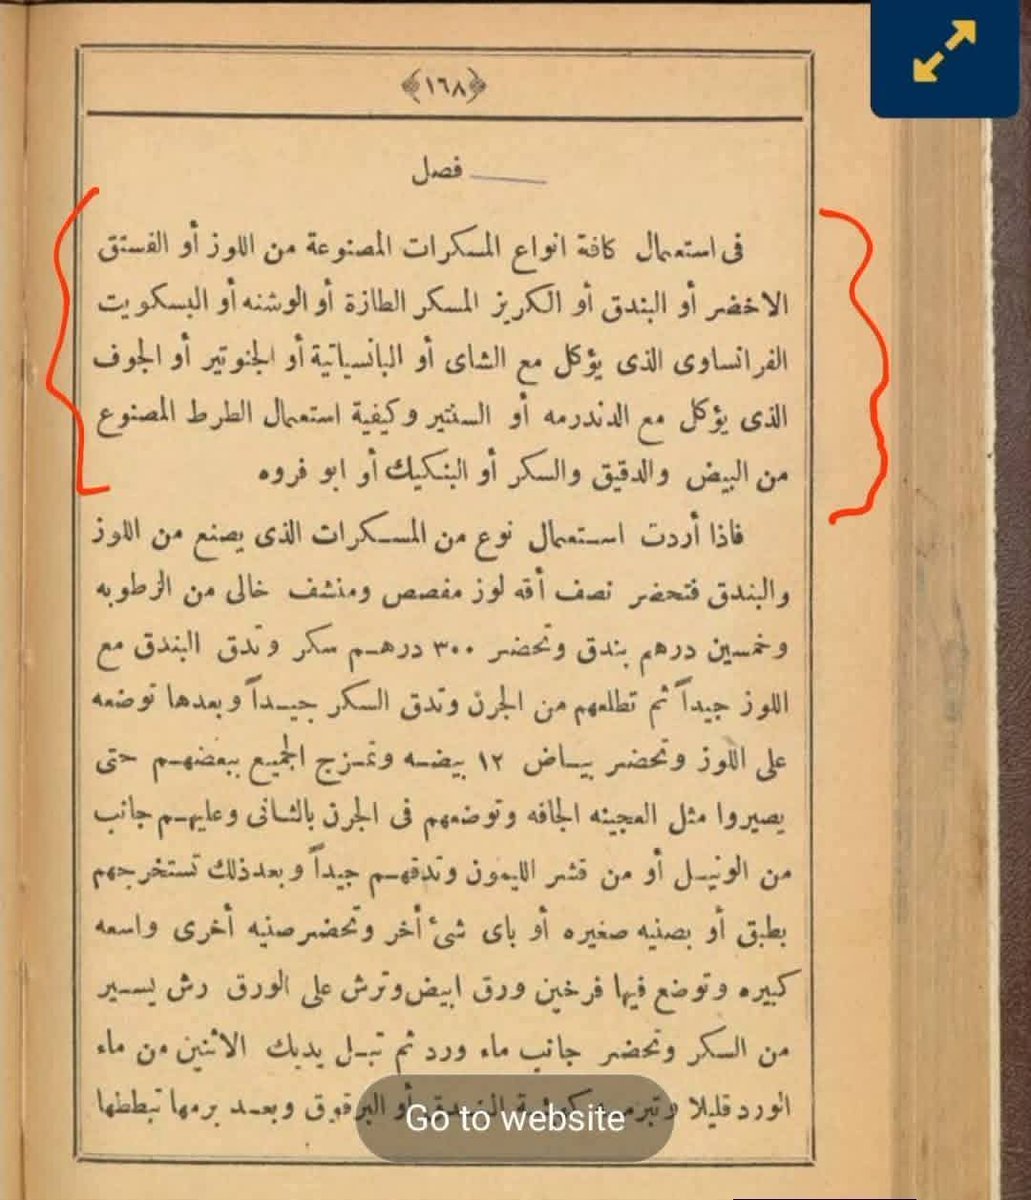 ﴿١٦٨﴾
فصل
فى استعمال كافة انواع المسكرات المصنوعة من اللوز أو الفستق
الاخضر أو البندق أو الكريز المسكر الطازة أو الوشنه أو البسكويت
الفرانساوى الذى يؤكل مع الشاى أو البانسباتية أو الجنوتير أو الجوف
الذى يؤكل مع الدندرمه أو السنتير وكيفية استعمال الطرط المصنوع
من البيض والدقيق والسكر أو البنكيك أو ابو فروه
فاذا أردت استعمال نوع من المسكرات الذى يصنع من اللوز
والبندق فتحضر نصف أقه لوز مفصص ومنشف خالى من الرطوبه
وخمسين درهم بندق وتحضر ٣٠٠ درهم سكر وتدق البندق مع
اللوز جيداً ثم تطلعهم من الجرن وتدق السكر جيداً وبعدها توضعه
على اللوز وتحضر بياض ١٢ بيضه وتمزج الجميع ببعضهم حتى
يصيروا مثل العجينه الجافه وتوضعهم فى الجرن بالثانى وعليهم جانب
من الونيل أو من قشر الليمون وتدقهم جيداً وبعد ذلك تستخرجهم
بطبق أو بصنيه صغيره أو باى شئ أخر وتحضر صنيه أخرى واسعه
كبيره وتوضع فيها فرخين ورق ابيض وترش على الورق رش يسير
من السكر وتحضر جانب ماء ورد ثم تبل يديك الاثنين من ماء
الورد قليلا وتبرم البندق أو البرقوق وبعد برمها تبططها
Go to website